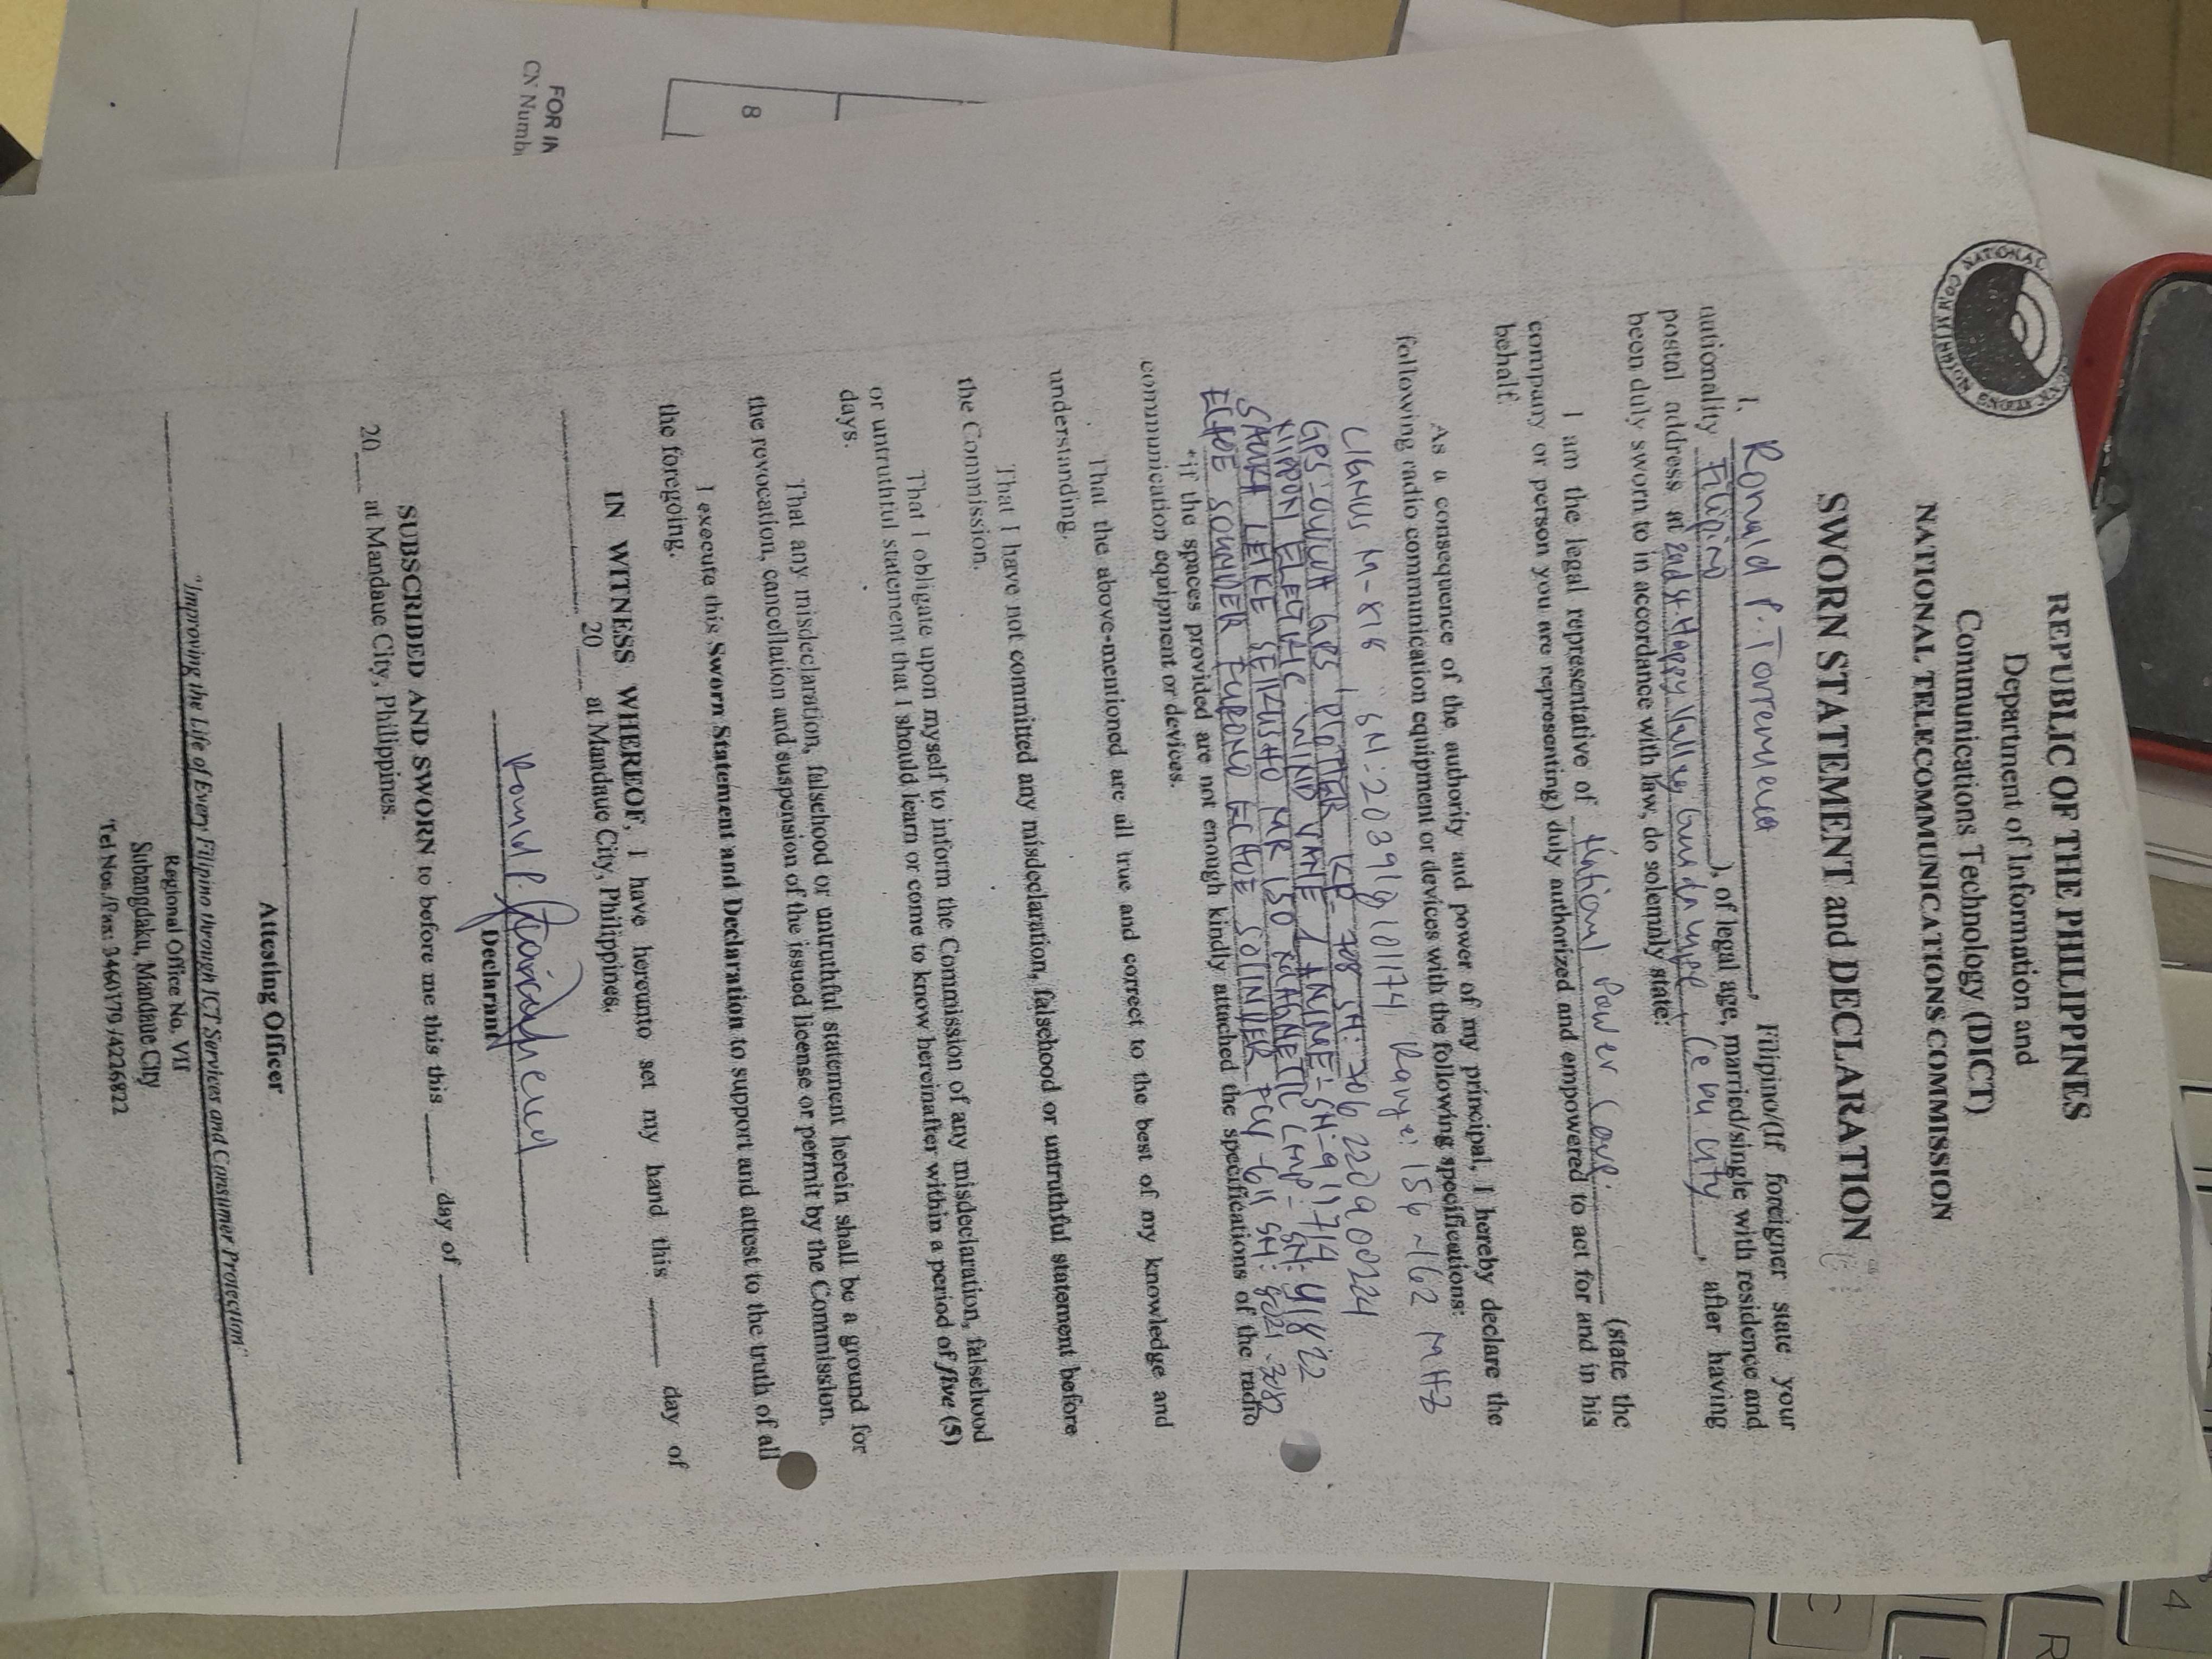 REPUBLIC OF THE PHILIPPINES
Department of Information and
Communications Technology (DICT)
NATIONAL TELECOMMUNICATIONS COMMISSION
SWORN STATEMENT and DECLARATION
I, Ronald P. Torremucha, Filipino/(If foreigner state your
nationality Filipino), of legal age, married/single with residence and
postal address at 2nd St. Happy Valley Guadalupe Cebu City, after having
been duly sworn to in accordance with law, do solemnly state:
I am the legal representative of National Power Corp. (state the
company or person you are representing) duly authorized and empowered to act for and in his
behalf.
As a consequence of the authority and power of my principal, I hereby declare the
following radio communication equipment or devices with the following specifications:
CIGNUS M-X16 SN: 203919101174 Range: 156~162 MHZ
GPS-ONWA GPS PLOTTER KP-708 SN: 706 220900224
NIPPON ELECTRIC WIND VANE & SN-911714-418'22
SAURA KEIKI SEIKUSHO MR 150 MAGNETIC SN:
ECHOE SOUNDER FURUNO ECHOE SOUNDER SN:
*if the spaces provided are not enough kindly attached the specifications of the radio
communication equipment or devices.
That the above-mentioned are all true and correct to the best of my knowledge and
understanding.
That I have not committed any misdeclaration, falsehood or untruthful statement before
the Commission.
That I obligate upon myself to inform the Commission of any misdeclaration, falsehood
or untruthful statement that I should learn or come to know hereinafter within a period of five (5)
days.
That any misdeclaration, falsehood or untruthful statement herein shall be a ground for
the revocation, cancellation and suspension of the issued license or permit by the Commission.
I execute this Sworn Statement and Declaration to support and attest to the truth of all
the foregoing.
IN WITNESS WHEREOF, I have hereunto set my hand this ____ day of
________ 20___ at Mandaue City, Philippines.
Declarant
SUBSCRIBED AND SWORN to before me this this ____ day of ________
20___ at Mandaue City, Philippines.
Attesting Officer
"Improving the Life of Every Filipino through ICT Services and Consumer Protection"
Regional Office No. VII
Subangdaku, Mandaue City
Tel Nos./Fax:
FOR IN
CN Numb
8
4
R
C